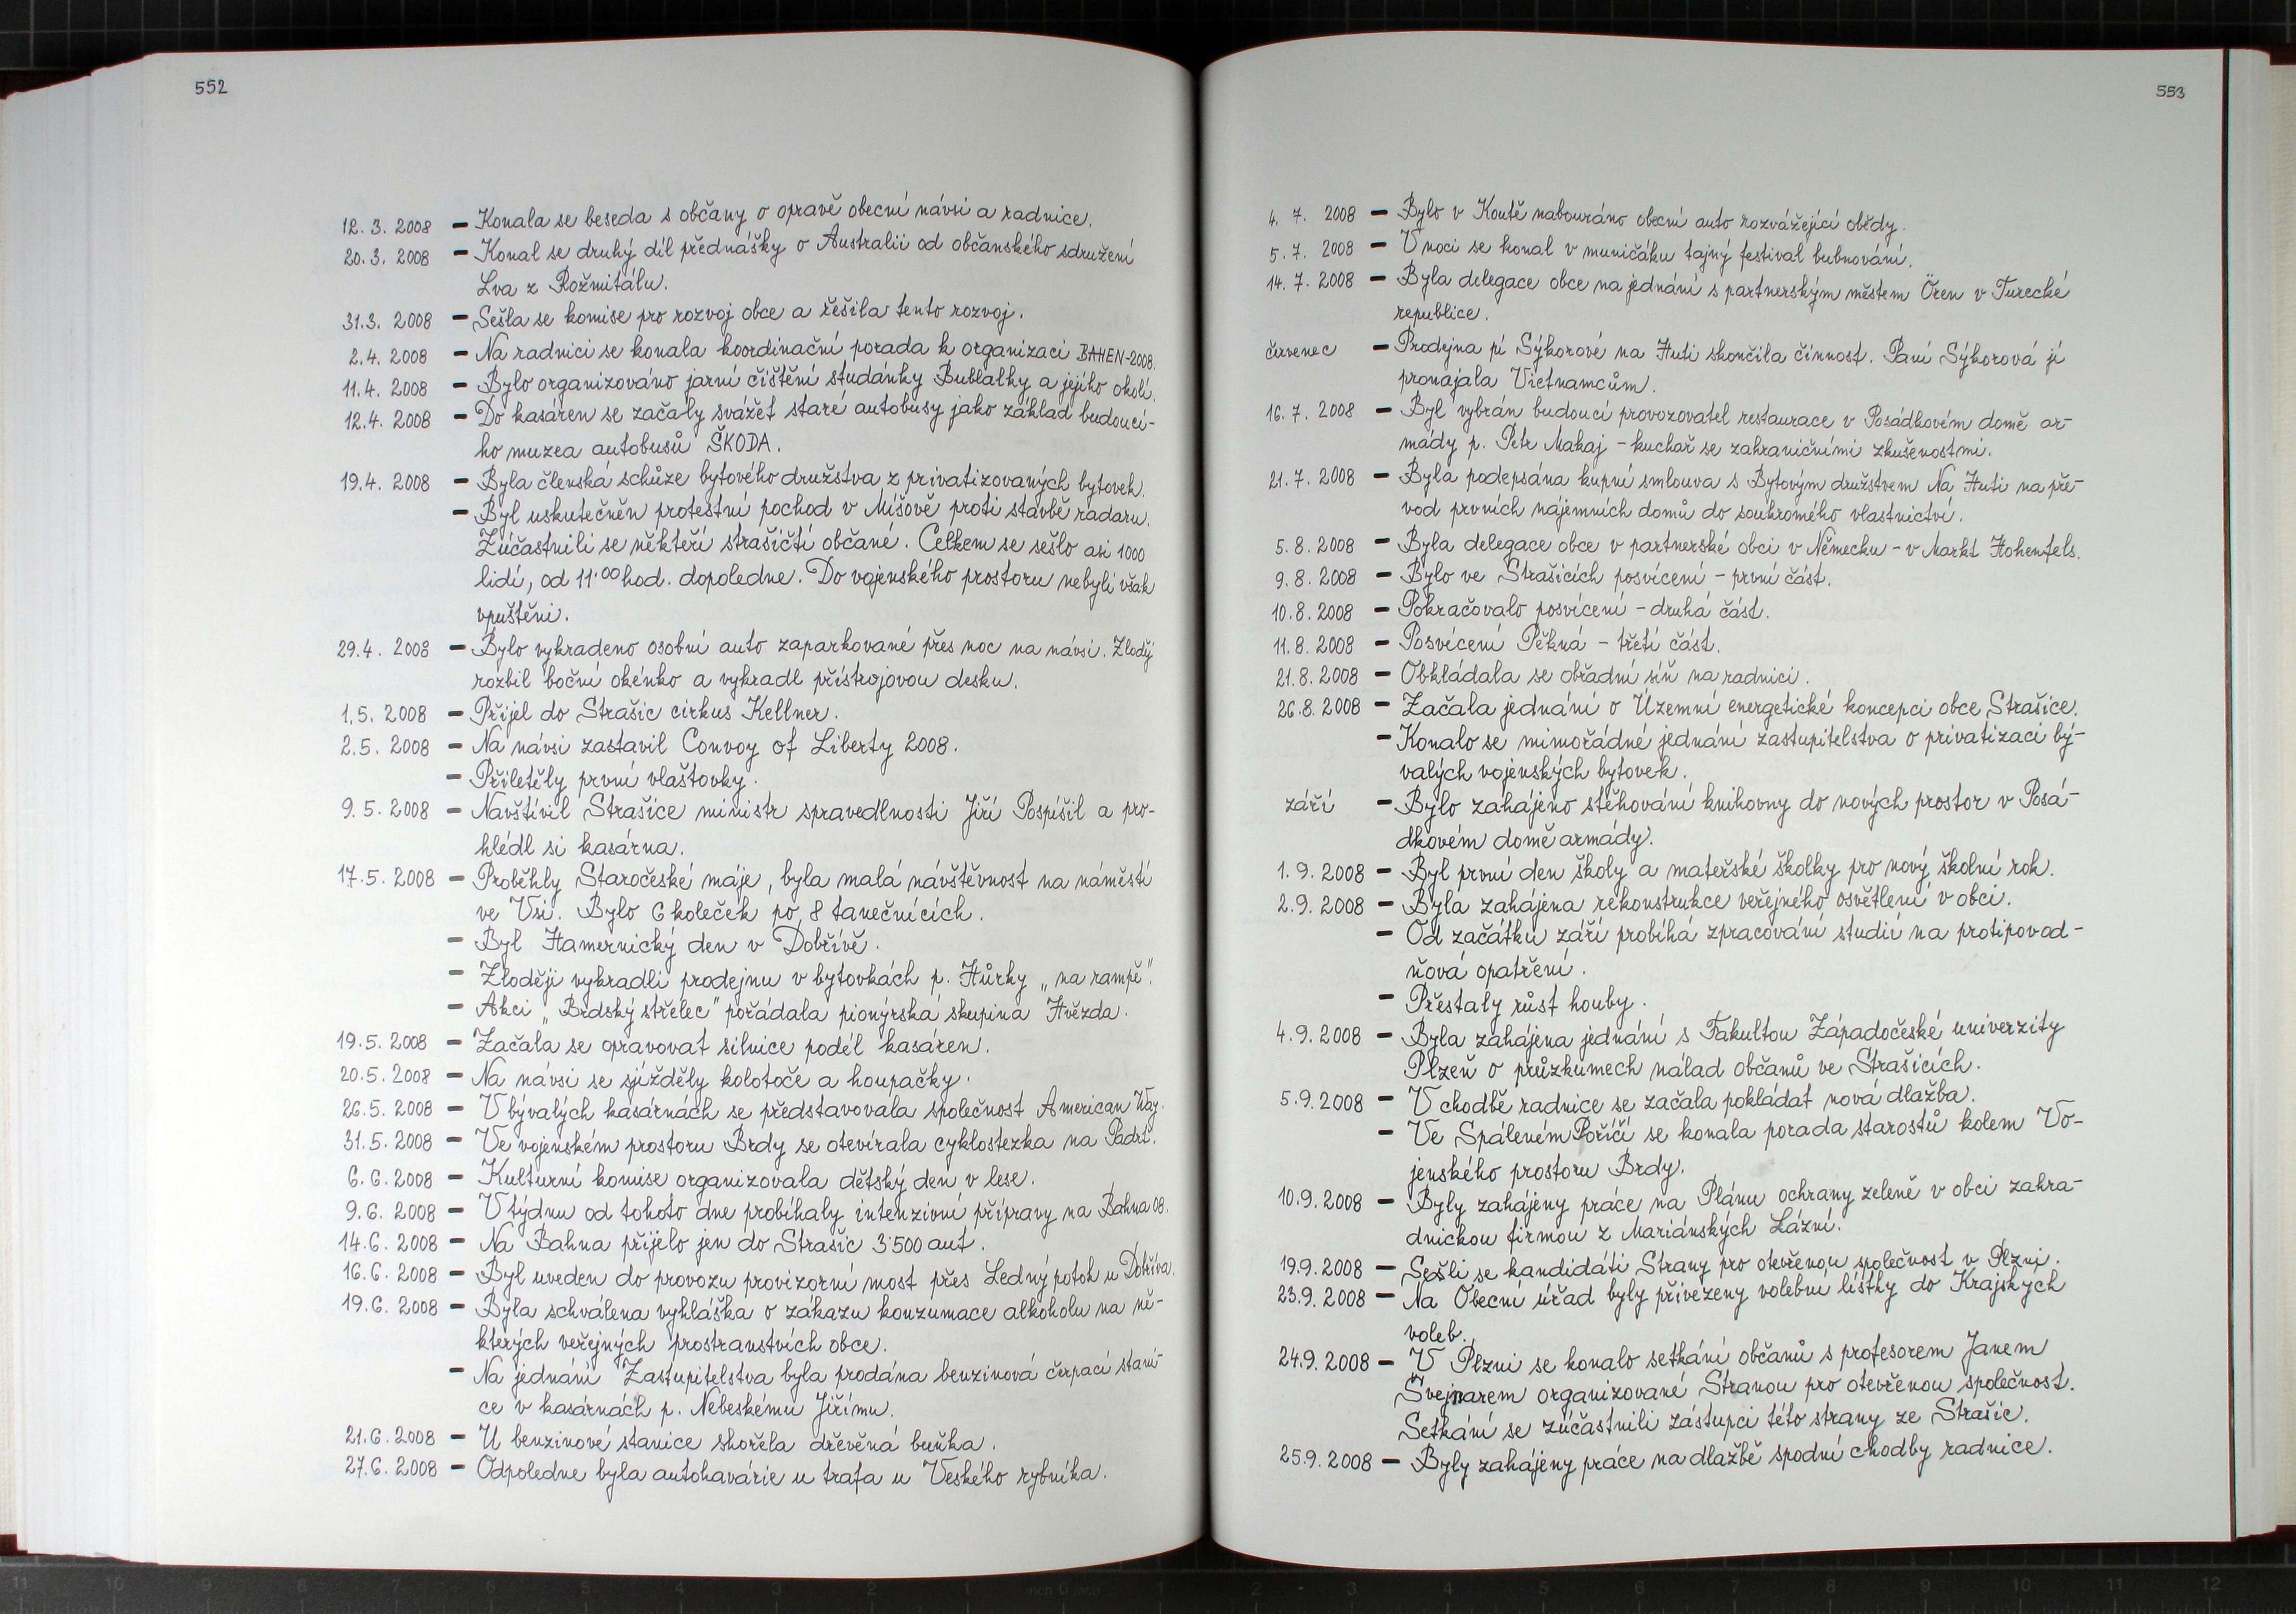 552
12. 3. 2008 – Konala se beseda s občany o opravě obecní návsi a radnice.
20. 3. 2008 – Konal se druhý díl přednášky o Australii od občanského sdružení
Lva z Rožmitálu.
31.3. 2008 – Sešla se komise pro rozvoj obce a řešila tento rozvoj.
2.4. 2008 – Na radnici se konala koordinační porada k organizaci BAHEN-2008.
11.4. 2008 – Bylo organizováno jarní čištění studánky Bublalky a jejího okolí.
12.4. 2008 – Do kasáren se začaly svážet staré autobusy jako základ budoucí-
ho muzea autobusů ŠKODA.
19.4. 2008 – Byla členská schůze bytového družstva z privatizovaných bytovek.
– Byl uskutečněn protestní pochod v Míšově proti stavbě radaru.
Zúčastnili se někteří strašičtí občané. Celkem se sešlo asi 1000
lidí, od 11·00 hod. dopoledne. Do vojenského prostoru nebyli však
vpuštěni.
29.4. 2008 – Bylo vykradeno osobní auto zaparkované přes noc na návsi. Zloděj
rozbil boční okénko a vykradl přístrojovou desku.
1.5. 2008 – Přijel do Strašic cirkus Kellner.
2.5. 2008 – Na návsi zastavil Convoy of Liberty 2008.
– Přiletěly první vlaštovky.
9.5. 2008 – Navštívil Strašice ministr spravedlnosti Jiří Pospíšil a pro-
hlédl si kasárna.
17.5. 2008 – Proběhly Staročeské máje, byla malá návštěvnost na náměstí
ve Vsi. Bylo 6 koleček po 8 tanečnících.
– Byl Hamernický den v Dobřívě.
– Zloději vykradli prodejnu v bytovkách p. Hůrky „na rampě".
– Akci „Brdský střelec" pořádala pionýrská skupina Hvězda.
19.5. 2008 – Začala se opravovat silnice podél kasáren.
20.5. 2008 – Na návsi se sjížděly kolotoče a houpačky.
26.5. 2008 – V bývalých kasárnách se představovala společnost American Way.
31.5. 2008 – Ve vojenském prostoru Brdy se otevírala cyklostezka na Padrť.
6.6. 2008 – Kulturní komise organizovala dětský den v lese.
9.6. 2008 – V týdnu od tohoto dne probíhaly intenzivní přípravy na Bahna 08.
14.6. 2008 – Na Bahna přijelo jen do Strašic 3·500 aut.
16.6. 2008 – Byl uveden do provozu provizorní most přes Ledný potok u Dobříva.
19.6. 2008 – Byla schválena vyhláška o zákazu konzumace alkoholu na ně-
kterých veřejných prostranstvích obce.
– Na jednání Zastupitelstva byla prodána benzinová čerpací stani-
ce v kasárnách p. Nebeskému Jiřímu.
21.6.2008 – U benzinové stanice shořela dřevěná buňka.
27.6. 2008 – Odpoledne byla autohavárie u trafa u Veského rybníka.
553
4. 7. 2008 – Bylo v Koutě nabouráno obecní auto rozvážející obědy.
5. 7. 2008 – V noci se konal v muničáku tajný festival bubnování.
14. 7. 2008 – Byla delegace obce na jednání s partnerským městem Ören v Turecké
republice.
červenec – Prodejna pí Sýkorové na Huti skončila činnost. Paní Sýkorová ji
pronajala Vietnamcům.
16. 7. 2008 – Byl vybrán budoucí provozovatel restaurace v Posádkovém domě ar-
mády p. Petr Makaj – kuchař se zahraničními zkušenostmi.
21. 7. 2008 – Byla podepsána kupní smlouva s Bytovým družstvem Na Huti na pře-
vod prvních nájemních domů do soukromého vlastnictví.
5. 8. 2008 – Byla delegace obce v partnerské obci v Německu – v Markt Hohenfels.
9. 8. 2008 – Bylo ve Strašicích posvícení – první část.
10. 8. 2008 – Pokračovalo posvícení – druhá část.
11. 8. 2008 – Posvícení Pěkná – třetí část.
21.8. 2008 – Obkládala se obřadní síň na radnici.
26.8. 2008 – Začala jednání o Územní energetické koncepci obce Strašice.
– Konalo se mimořádné jednání zastupitelstva o privatizaci bý-
valých vojenských bytovek.
září – Bylo zahájeno stěhování knihovny do nových prostor v Posá-
dkovém domě armády.
1. 9. 2008 – Byl první den školy a mateřské školky pro nový školní rok.
2. 9. 2008 – Byla zahájena rekonstrukce veřejného osvětlení v obci.
– Od začátku září probíhá zpracování studií na protipovod-
ňová opatření.
– Přestaly růst houby.
4. 9. 2008 – Byla zahájena jednání s Fakultou Západočeské univerzity
Plzeň o průzkumech nálad občanů ve Strašicích.
5.9.2008 – V chodbě radnice se začala pokládat nová dlažba.
– Ve Spáleném Poříčí se konala porada starostů kolem Vo-
jenského prostoru Brdy.
10.9.2008 – Byly zahájeny práce na Plánu ochrany zeleně v obci zahra-
dnickou firmou z Mariánských Lázní.
19.9.2008 – Sešli se kandidáti Strany pro otevřenou společnost v Plzni.
23.9.2008 – Na Obecní úřad byly přivezeny volební lístky do Krajských
voleb.
24.9.2008 – V Plzni se konalo setkání občanů s profesorem Janem
Švejnarem organizované Stranou pro otevřenou společnost.
Setkání se zúčastnili zástupci této strany ze Strašic.
25.9.2008 – Byly zahájeny práce na dlažbě spodní chodby radnice.
11 10 9 8 7 6 5 4 3 2 1 inch 0 inch 1 2 3 4 5 6 7 8 9 10 11 12